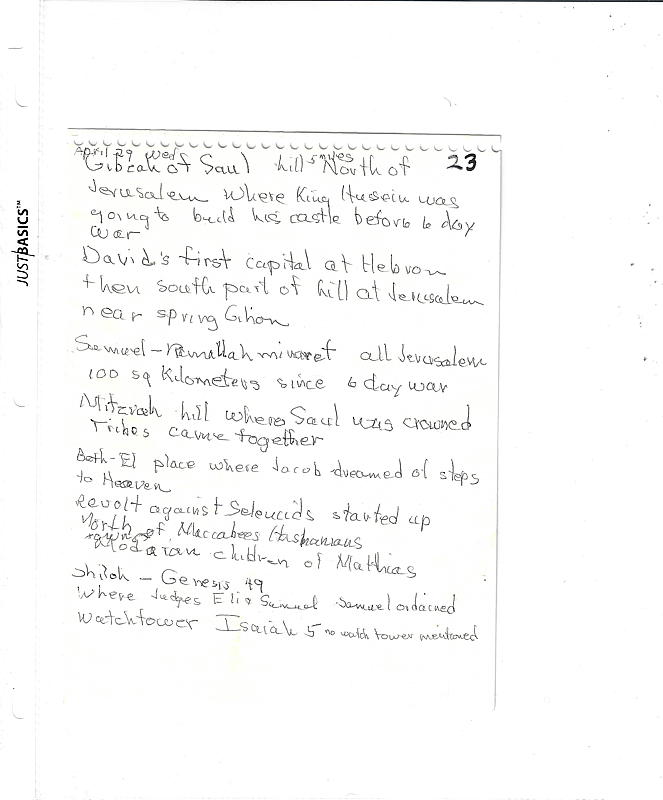 JUSTBASICS™
April 29 Wed
23
Gibeah of Saul hill 5 miles North of
Jerusalem where King Hussein was
going to build his castle before 6 day
war
David's first capital at Hebron
then south part of hill at Jerusalem
near spring Gihon
Samuel - Ramallah minaret all Jerusalem
100 sq Kilometers since 6 day war
Mitzvah hill where Saul was crowned
Tribes came together
Beth-El place where Jacob dreamed of steps
to Heaven
Revolt against Seleucids started up
North of Maccabees Hashanaus
children of Mathias
Shiloh - Genesis 49
Where Judges Eli & Samuel Samuel ordained
Watchtower Isaiah 5 no watch tower mentioned